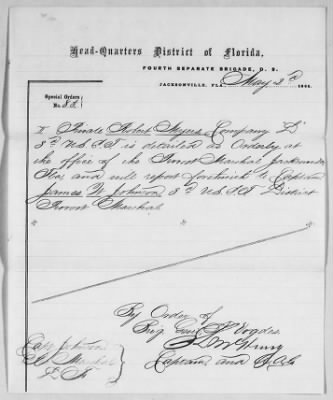 Head-Quarters District of Florida,
FOURTH SEPARATE BRIGADE, D. S.
JACKSONVILLE, FLA. May 2d 186
Special Orders,
No. 88
I Private Robert Myers Company D
3d U.S.C.T is detailed as Orderly at
the office of the Provost Marshal Jacksonville
Fla. and will report forthwith to Captain
James W Johnson 3d U.S.C.T District
Provost Marshal
By Order of
Brig Genl Vogdes
Captain and A.A.G
Capt Johnson
Marshal
D. F.